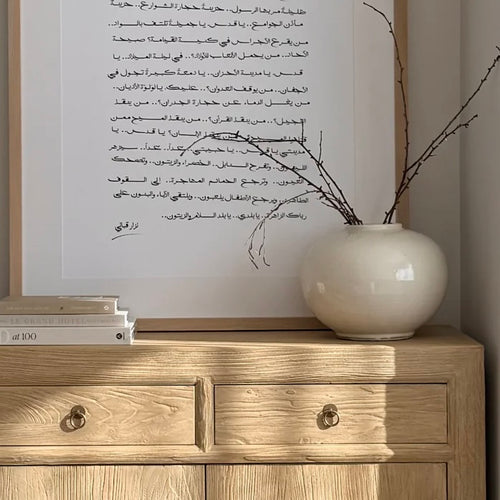 ظليلةً مر بها الرسول.. حزينةٌ حجارة الشوارع.. حزينةٌ
مآذن الجوامع.. يا قدس، يا جميلةً تلتف بالسواد..
من يقرع الأجراس في كنيسة القيامة؟ صبيحة
الآحاد.. من يحمل الألعاب للأولاد؟.. في ليلة الميلاد.. يا
قدس، يا مدينة الأحزان.. يا دمعةً كبيرةً تجول في
الأجفان.. من يوقف العدوان؟.. عليك، يا لؤلؤة الأديان..
من يغسل الدماء عن حجارة الجدران؟.. من ينقذ
الإنجيل؟.. من ينقذ القرآن؟.. من ينقذ المسيح ممن
المسيح؟.. من ينقذ الإنسان؟.. يا قدس.. يا
مدينتي يا قدس.. يا حبيبتي.. غداً.. غداً.. سيزهر
الليمون.. وتفرح السنابل.. الخضراء والزيتون.. وتضحك
العيون.. وترجع الحمائم المهاجرة.. إلى السقوف
الطاهرة ويرجع الأطفال يلعبون.. ويلتقي الآباء والبنون على
رباك الزاهرة.. يا بلدي.. يا بلد السلام والزيتون..
نزار قباني
LE GRAND HOTEL
at 100